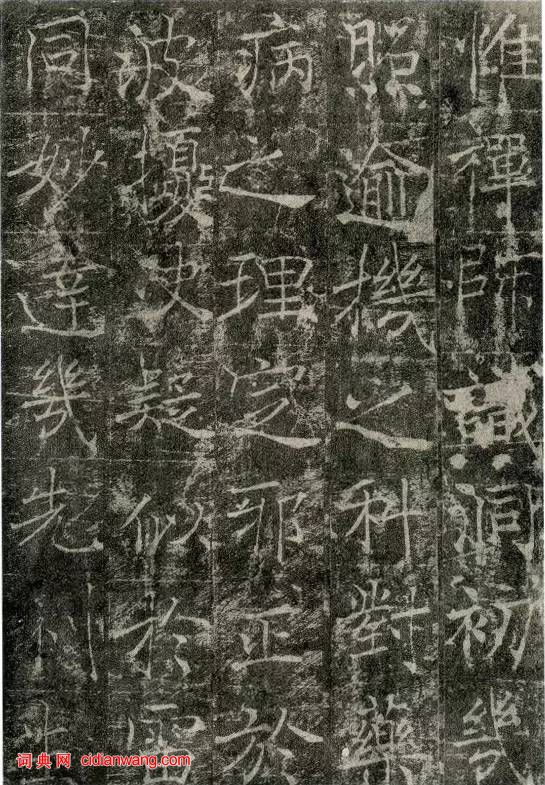 惟禪師識洞初幾
照逾機之科對藥
病之理定邪正於
波擾決疑似於雷
同妙達幾先
词典网 cidianwang.com